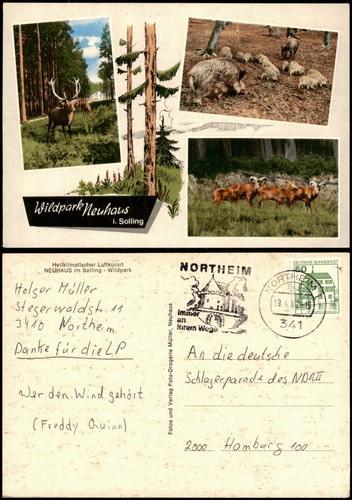 Wildpark Neuhaus
i. Solling
Heilklimatischer Luftkurort
NEUHAUS im Solling - Wildpark
Holger Müller
Stegerwaldstr. 11
3410 Northeim
Danke für die LP
Wer den Wind gehört
(Freddy Quinn)
Fotos und Verlag Foto-Drogerie Müller, Neuhaus
NORTHEIM
Immer
an
Ihrem Wege
NORTHEIM 1
341
60
DEUTSCHE BUNDESPOST
An die deutsche
Schlagerparade des NDR II
2000 Hamburg 100